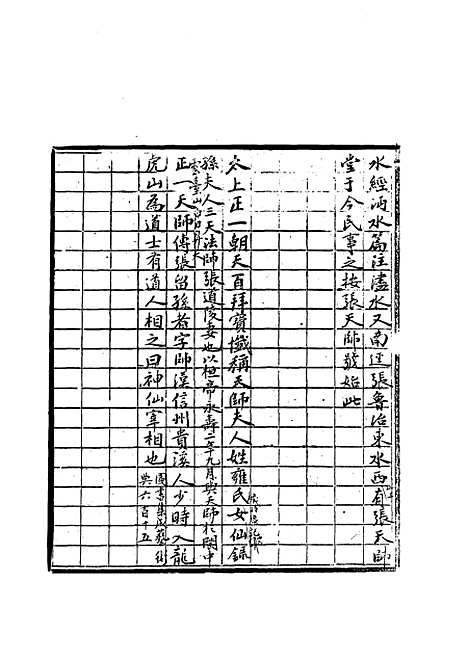 水經沔水篇注濜水又南逕張魯治東水西有張天師
堂于今民事之按張天師號始此
太上正一朝天百拜寶懺稱天師夫人姓雍氏女仙錄
孫夫人三天法師張道陵妻也以桓帝永壽二年九月與天師於閬中
雲臺山
正一天師傳張留孫者字師漢信州貴溪人少時入龍
虎山為道士有道人相之曰神仙宰相也
圖書集成藝術
典六百十五